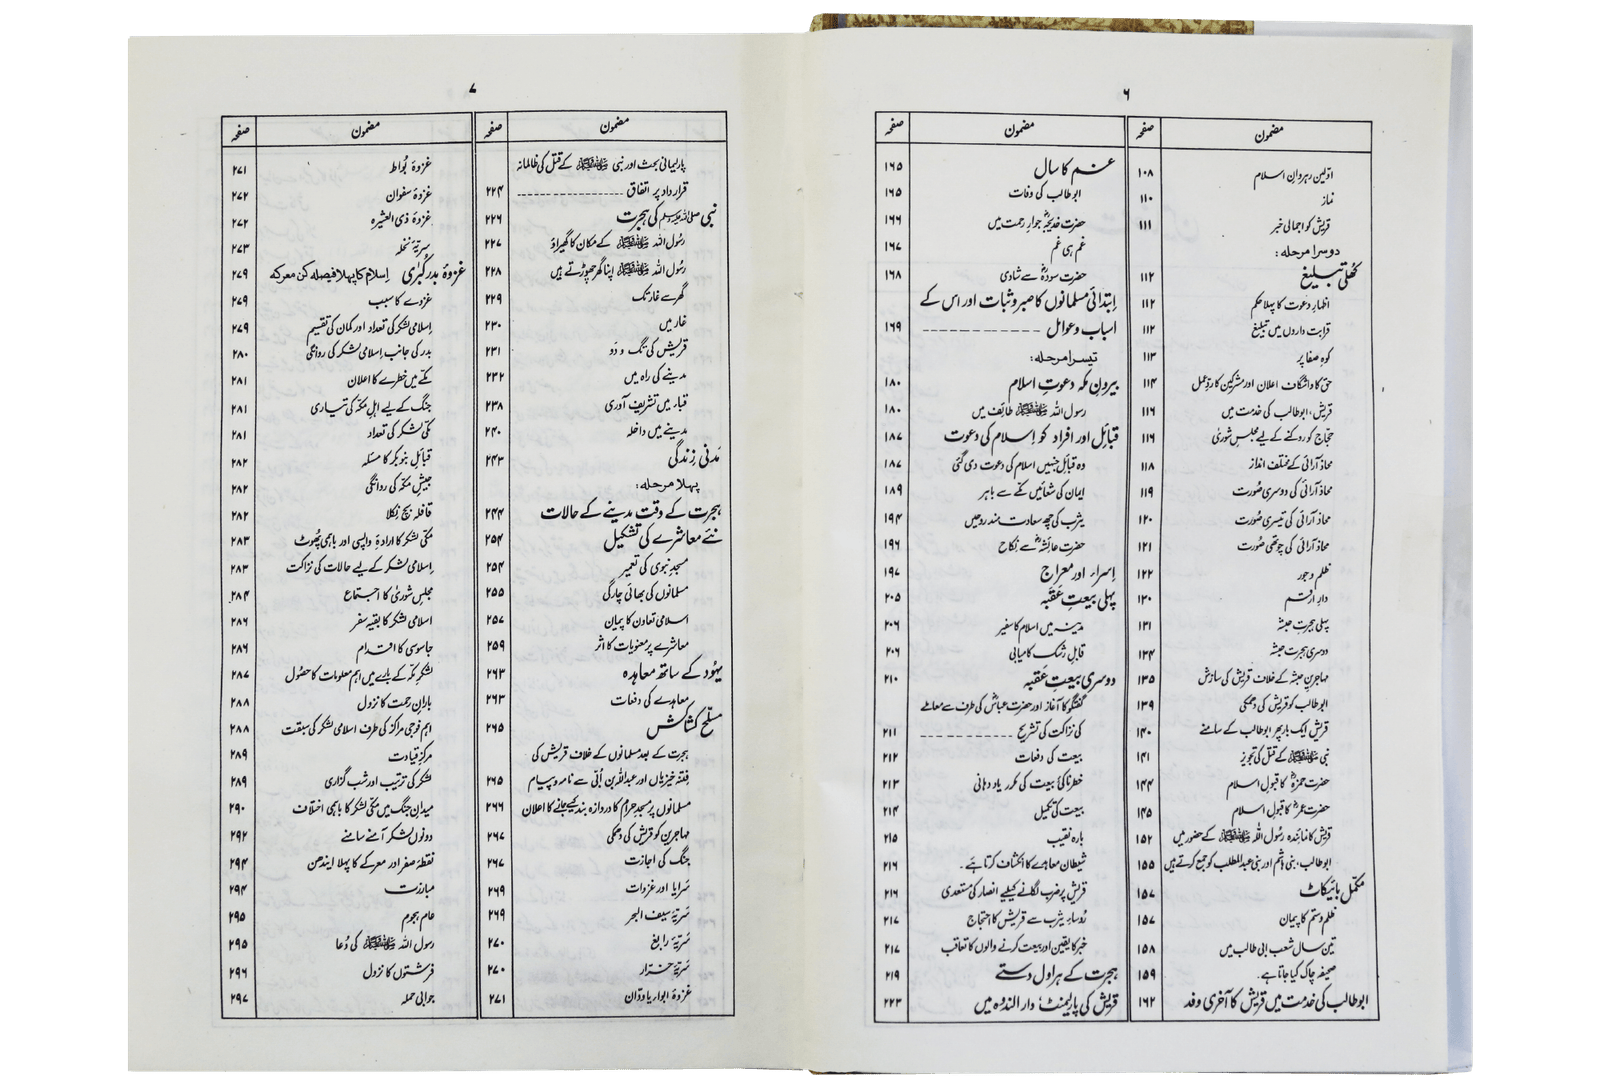 ۶
مضمون صفحہ
اوّلین رہروانِ اسلام ۱۰۸
نماز ۱۱۰
قریش کو اجمالی خبر ۱۱۱
دوسرا مرحلہ:
کھلی تبلیغ ۱۱۲
اظہارِ دعوت کا پہلا حکم ۱۱۲
قرابت داروں میں تبلیغ ۱۱۲
کوہِ صفا پر ۱۱۳
حق کا واشگاف اعلان اور مشرکین کا ردِّعمل ۱۱۴
قریش، ابوطالب کی خدمت میں ۱۱۶
حجّاج کو روکنے کے لیے مجلسِ شوریٰ ۱۱۶
محاذ آرائی کے مختلف انداز ۱۱۸
محاذ آرائی کی دوسری صُورت ۱۱۹
محاذ آرائی کی تیسری صُورت ۱۲۰
محاذ آرائی کی چوتھی صُورت ۱۲۱
ظلم و جور ۱۲۲
دارِ ارقم ۱۳۰
پہلی ہجرتِ حبشہ ۱۳۱
دوسری ہجرت حبشہ ۱۳۴
مہاجرینِ حبشہ کے خلاف قریش کی سازش ۱۳۵
ابوطالب کو قریش کی دھمکی ۱۳۹
قریش ایک بار پھر ابوطالب کے سامنے ۱۴۰
نبی ﷺ کے قتل کی تجویز ۱۴۱
حضرت حمزہؓ کا قبولِ اسلام ۱۴۴
حضرت عمرؓ کا قبولِ اسلام ۱۴۵
قریش کا نمائندہ رسُول اللہ ﷺ کے حضور میں ۱۵۲
ابوطالب، بنی ہاشم اور بنی عبدالمطلب کو جمع کرتے ہیں ۱۵۵
مکمّل بائیکاٹ ۱۵۷
ظلم و ستم کا پیمان ۱۵۷
تین سال شعب ابی طالب میں ۱۵۸
صحیفہ چاک کیا جاتا ہے۔ ۱۵۹
ابوطالب کی خدمت میں قریش کا آخری وفد ۱۶۲
مضمون صفحہ
غم کا سال ۱۶۵
ابوطالب کی وفات ۱۶۵
حضرت خدیجہؓ جوارِ رحمت میں ۱۶۶
غم ہی غم ۱۶۷
حضرت سودہؓ سے شادی ۱۶۸
اِبتدائی مسلمانوں کا صبر و ثبات اور اس کے
اسباب و عوامل ۱۶۹
تیسرا مرحلہ:
بیرونِ مکہ دعوتِ اسلام ۱۸۰
رسول اللہ ﷺ طائف میں ۱۸۰
قبائل اور افراد کو اِسلام کی دعوت ۱۸۷
وہ قبائل جنہیں اسلام کی دعوت دی گئی ۱۸۷
ایمان کی شعائیں مکّے سے باہر ۱۸۹
یثرب کی چھ سعادت مند روحیں ۱۹۴
حضرت عائشہؓ سے نِکاح ۱۹۶
اِسراء اور معراج ۱۹۷
پہلی بیعتِ عَقَبہ ۲۰۵
مدینہ میں اسلام کا سفیر ۲۰۶
قابلِ رشک کامیابی ۲۰۶
دوسری بیعتِ عَقَبہ ۲۱۰
گفتگو کا آغاز اور حضرت عباسؓ کی طرف سے معاملے
کی نزاکت کی تشریح ۲۱۱
بیعت کی دفعات ۲۱۲
خطرناکیٔ بیعت کی مکرر یاد دہانی ۲۱۳
بیعت کی تکمیل ۲۱۴
بارہ نقیب ۲۱۵
شیطان معاہدے کا انکشاف کرتا ہَے۔ ۲۱۶
قریش پر ضرب لگانے کیلیے انصار کی مستعدی ۲۱۶
رُؤساءِ یثرب سے قریش کا احتجاج ۲۱۷
خبر کا یقین اور بیعت کرنے والوں کا تعاقب ۲۱۷
ہجرت کے ہراول دستے ۲۱۹
قریش کی پارلیمنٹ؛ دار الندوہ میں ۲۲۳
۷
مضمون صفحہ
پارلیمانی بحث اور نبی ﷺ کے قتل کی ظالمانہ
قرارداد پر اتفاق ۲۲۴
نبی صلی اللہ علیہ وسلم کی ہجرت ۲۲۶
رسُول اللہ ﷺ کے مکان کا گھیراؤ ۲۲۷
رسُول اللہ ﷺ اپنا گھر چھوڑتے ہیں ۲۲۸
گھر سے غار تک ۲۲۹
غار میں ۲۳۰
قریش کی تگ و دَو ۲۳۱
مدینے کی راہ میں ۲۳۲
قباء میں تشریف آوری ۲۳۸
مدینے میں داخلہ ۲۴۰
مَدنی زِندگی ۲۴۳
پہلا مرحلہ:
ہجرت کے وقت مدینے کے حالات ۲۴۴
نئے معاشرے کی تشکیل ۲۵۴
مسجدِ نبوی کی تعمیر ۲۵۴
مسلمانوں کی بھائی چارگی ۲۵۵
اسلامی تعاون کا پیمان ۲۵۷
معاشرے پر معنویات کا اثر ۲۵۹
یہُود کے ساتھ معاہدہ ۲۶۳
معاہدے کی دفعات ۲۶۳
مسلّح کشاکش ۲۶۵
ہجرت کے بعد مسلمانوں کے خلاف قریش کی
فتنہ خیزیاں اور عبداللہ بن اُبَیّ سے نامہ و پیام ۲۶۵
مسلمانوں پر مسجدِ حرام کا دروازہ بند کیے جانے کا اعلان ۲۶۶
مہاجرین کو قریش کی دھمکی ۲۶۷
جنگ کی اجازت ۲۶۷
سَرایا اور غزوات ۲۶۹
سَریّۂ سیف البحر ۲۶۹
سَریّۂ رابغ ۲۷۰
سَریّۂ خرّار ۲۷۰
غزوۂ ابواء یا ودّان ۲۷۱
مضمون صفحہ
غزوۂ بُواط ۲۷۱
غزوۂ سفوان ۲۷۲
غزوۂ ذی العشیرہ ۲۷۲
سریّۂ نخلہ ۲۷۳
غزوۂ بدر کُبریٰ اِسلام کا پہلا فیصلہ کن معرکہ ۲۷۹
غزوے کا سبب ۲۷۹
اِسلامی لشکر کی تعداد اور کمان کی تقسیم ۲۷۹
بدر کی جانب اِسلامی لشکر کی روانگی ۲۸۰
مکّے میں خطرے کا اعلان ۲۸۱
جنگ کے لیے اہلِ مکّہ کی تیاری ۲۸۱
مکّی لشکر کی تعداد ۲۸۱
قبائلِ بنو بکر کا مسئلہ ۲۸۲
جیشِ مکّہ کی روانگی ۲۸۲
قافلہ بچ نِکلا ۲۸۲
مکّی لشکر کا ارادۂ واپسی اور باہمی پھُوٹ ۲۸۳
اِسلامی لشکر کے لیے حالات کی نزاکت ۲۸۳
مجلسِ شوریٰ کا اجتماع ۲۸۴
اسلامی لشکر کا بقیہ سفر ۲۸۶
جاسوسی کا اقدام ۲۸۶
لشکرِ مکّہ کے بارے میں اہم معلومات کا حصُول ۲۸۷
بارانِ رحمت کا نزول ۲۸۸
اہم فوجی مراکز کی طرف اسلامی لشکر کی سبقت ۲۸۸
مرکزِ قیادت ۲۸۹
لشکر کی ترتیب اور شب گزاری ۲۸۹
میدانِ جنگ میں مکّی لشکر کا باہمی اختلاف ۲۹۰
دونوں لشکر آمنے سامنے ۲۹۲
نقطۂ صفر اور معرکے کا پہلا ایندھن ۲۹۴
مبارزت ۲۹۴
عام ہجوم ۲۹۵
رسول اللہ ﷺ کی دُعا ۲۹۵
فرشتوں کا نزول ۲۹۶
جوابی حملہ ۲۹۷